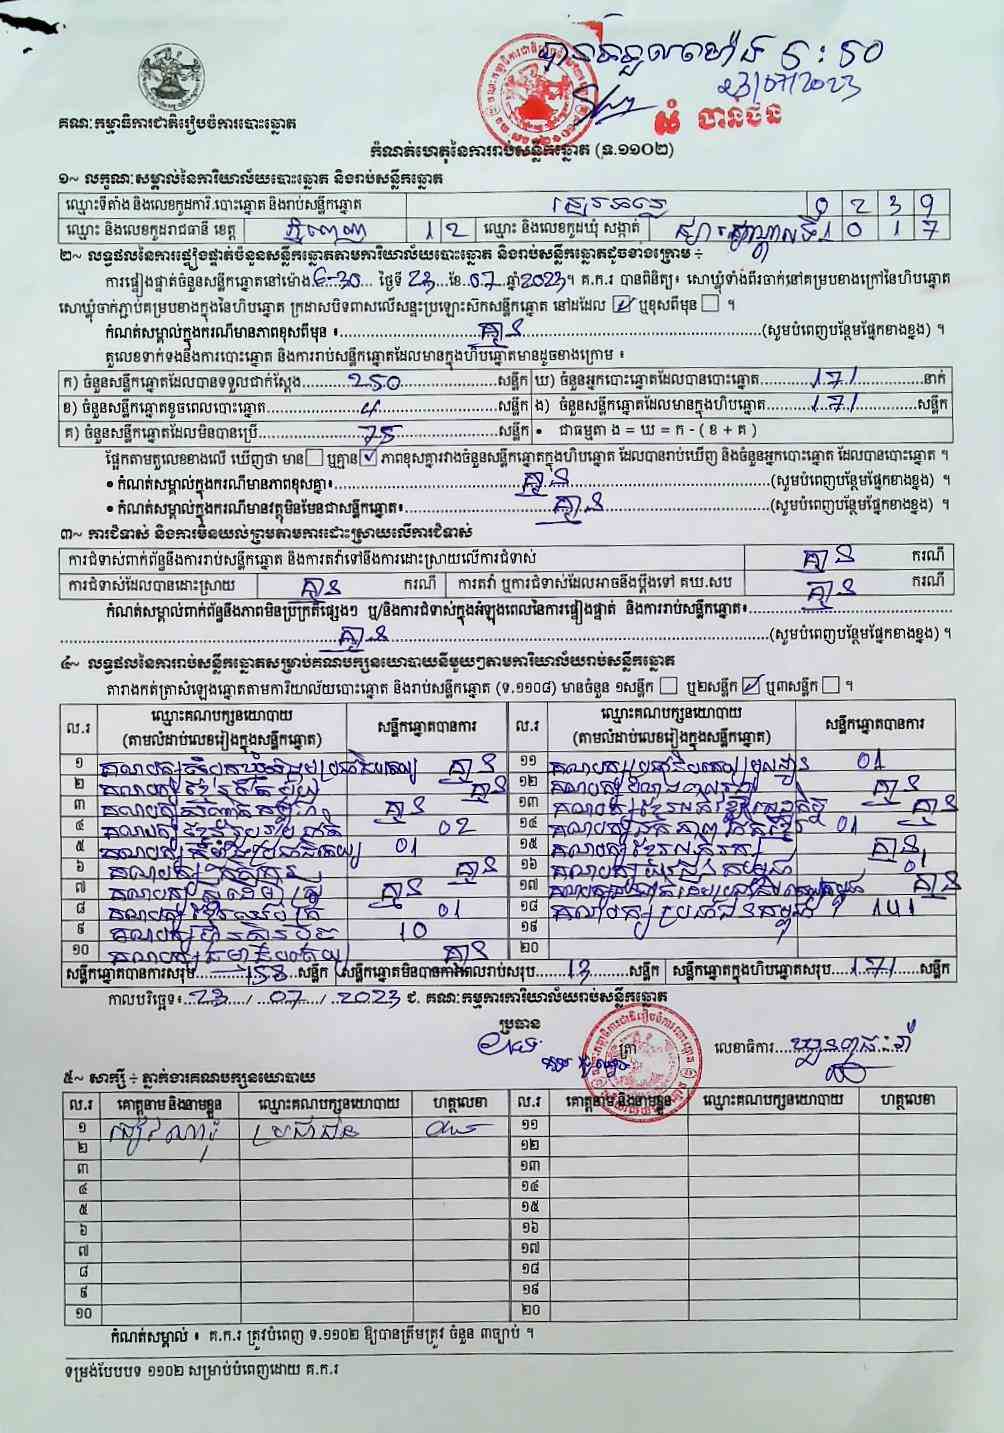 បានទទួលម៉ោង 5:50
23/07/2023
ធំ ប៊ុនថន
គណៈកម្មាធិការជាតិរៀបចំការបោះឆ្នោត
កំណត់ហេតុនៃការរាប់សន្លឹកឆ្នោត (ទ.១១០២)
១~ លក្ខណៈសម្គាល់នៃការិយាល័យបោះឆ្នោត និងរាប់សន្លឹកឆ្នោត
ឈ្មោះទីតាំង និងលេខកូដការិ.បោះឆ្នោត និងរាប់សន្លឹកឆ្នោត 0 2 3 9
ឈ្មោះ និងលេខកូដរាជធានី ខេត្ត ភ្នំពេញ 1 2 ឈ្មោះ និងលេខកូដឃុំ សង្កាត់ ផ្សារដើមថ្កូវ 0 1 7
២~ លទ្ធផលនៃការផ្ទៀងផ្ទាត់ចំនួនសន្លឹកឆ្នោតតាមការិយាល័យបោះឆ្នោត និងរាប់សន្លឹកឆ្នោតដូចខាងក្រោម ÷
ការផ្ទៀងផ្ទាត់ចំនួនសន្លឹកឆ្នោតនៅម៉ោង 6-30 ថ្ងៃទី 23 ខែ 07 ឆ្នាំ 2023។ គ.ក.រ បានពិនិត្យ៖ សោឃ្មុំទាំងពីរចាក់នៅគម្របខាងក្រៅនៃហិបឆ្នោត
សោឃ្មុំចាក់ភ្ជាប់គម្របខាងក្នុងនៃហិបឆ្នោត ក្រដាសបិទពាសលើសន្ទះប្រឡោះស៊កសន្លឹកឆ្នោត នៅដដែល ☑ ឬខុសពីមុន ☐ ។
កំណត់សម្គាល់ក្នុងករណីមានភាពខុសពីមុន ៖ គ្មាន (សូមបំពេញបន្ថែមផ្នែកខាងខ្នង) ។
តួលេខទាក់ទងនឹងការបោះឆ្នោត និងការរាប់សន្លឹកឆ្នោតដែលមានក្នុងហិបឆ្នោតមានដូចខាងក្រោម ៖
ក) ចំនួនសន្លឹកឆ្នោតដែលបានទទួលជាក់ស្តែង 250 សន្លឹក ឃ) ចំនួនអ្នកបោះឆ្នោតដែលបានបោះឆ្នោត 171 នាក់
ខ) ចំនួនសន្លឹកឆ្នោតខូចពេលបោះឆ្នោត 4 សន្លឹក ង) ចំនួនសន្លឹកឆ្នោតដែលមានក្នុងហិបឆ្នោត 171 សន្លឹក
គ) ចំនួនសន្លឹកឆ្នោតដែលមិនបានប្រើ 75 សន្លឹក • ជាធម្មតា ង = ឃ = ក - ( ខ + គ )
ផ្អែកតាមតួលេខខាងលើ ឃើញថា មាន ☐ ឬគ្មាន ☑ ភាពខុសគ្នារវាងចំនួនសន្លឹកឆ្នោតក្នុងហិបឆ្នោត ដែលបានរាប់ឃើញ និងចំនួនអ្នកបោះឆ្នោត ដែលបានបោះឆ្នោត ។
• កំណត់សម្គាល់ក្នុងករណីមានភាពខុសគ្នា៖ គ្មាន (សូមបំពេញបន្ថែមផ្នែកខាងខ្នង) ។
• កំណត់សម្គាល់ក្នុងករណីមានវត្ថុមិនមែនជាសន្លឹកឆ្នោត៖ គ្មាន (សូមបំពេញបន្ថែមផ្នែកខាងខ្នង) ។
៣~ ការជំទាស់ និងការមិនយល់ព្រមតាមការដោះស្រាយលើការជំទាស់
ការជំទាស់ពាក់ព័ន្ធនឹងការរាប់សន្លឹកឆ្នោត និងការតវ៉ាទៅនឹងការដោះស្រាយលើការជំទាស់ គ្មាន ករណី
ការជំទាស់ដែលបានដោះស្រាយ គ្មាន ករណី ការតវ៉ា ឬការជំទាស់ដែលអាចនឹងប្តឹងទៅ គឃ.សប គ្មាន ករណី
កំណត់សម្គាល់ពាក់ព័ន្ធនឹងភាពមិនប្រក្រតីផ្សេងៗ ឬ/និងការជំទាស់ក្នុងអំឡុងពេលនៃការផ្ទៀងផ្ទាត់ និងការរាប់សន្លឹកឆ្នោត៖
គ្មាន (សូមបំពេញបន្ថែមផ្នែកខាងខ្នង) ។
៤~ លទ្ធផលនៃការរាប់សន្លឹកឆ្នោតសម្រាប់គណបក្សនយោបាយនីមួយៗតាមការិយាល័យរាប់សន្លឹកឆ្នោត
តារាងកត់ត្រាសំឡេងឆ្នោតតាមការិយាល័យបោះឆ្នោត និងរាប់សន្លឹកឆ្នោត (ទ.១១០៨) មានចំនួន ១សន្លឹក ☐ ឬ២សន្លឹក ☑ ឬ៣សន្លឹក ☐ ។
ល.រ ឈ្មោះគណបក្សនយោបាយ (តាមលំដាប់លេខរៀងក្នុងសន្លឹកឆ្នោត) សន្លឹកឆ្នោតបានការ ល.រ ឈ្មោះគណបក្សនយោបាយ (តាមលំដាប់លេខរៀងក្នុងសន្លឹកឆ្នោត) សន្លឹកឆ្នោតបានការ
១ គណបក្សសំបុកឃ្មុំសង្គមប្រជាធិបតេយ្យ គ្មាន ១១ គណបក្សប្រជាធិបតេយ្យមូលដ្ឋាន 01
២ គណបក្សខ្មែររួបរួម គ្មាន ១២ គណបក្ស គ្មាន
៣ គណបក្ស គ្មាន ១៣ គណបក្សខ្មែរអភិវឌ្ឍន៍សេដ្ឋកិច្ច គ្មាន
៤ គណបក្សខ្មែររួបរួមជាតិ 02 ១៤ គណបក្សឯកភាពជាតិខ្មែរ 01
៥ គណបក្សសំឡេងប្រជាធិបតេយ្យ 01 ១៥ គណបក្សខ្មែរអភិរក្ស គ្មាន
៦ គណបក្សកសិករ គ្មាន ១៦ គណបក្សយុវជនកម្ពុជា 01
៧ គណបក្សស្ត្រីដើម្បីស្ត្រី គ្មាន ១៧ គណបក្ស គ្មាន
៨ គណបក្ស 01 ១៨ គណបក្សប្រជាជនកម្ពុជា 141
៩ គណបក្សហ្វ៊ុនស៊ិនប៉ិច 10 ១៩
១០ គណបក្សធម្មាធិបតេយ្យ គ្មាន ២០
សន្លឹកឆ្នោតបានការសរុប 158 សន្លឹក សន្លឹកឆ្នោតមិនបានការពេលរាប់សរុប 13 សន្លឹក សន្លឹកឆ្នោតក្នុងហិបឆ្នោតសរុប 171 សន្លឹក
កាលបរិច្ឆេទ៖ 23 / 07 / 2023 ជ. គណៈកម្មការការិយាល័យរាប់សន្លឹកឆ្នោត
ប្រធាន
ត្រា លេខាធិការ
៥~ សាក្សី ÷ ភ្នាក់ងារគណបក្សនយោបាយ
ល.រ គោត្តនាម និងនាមខ្លួន ឈ្មោះគណបក្សនយោបាយ ហត្ថលេខា ល.រ គោត្តនាម និងនាមខ្លួន ឈ្មោះគណបក្សនយោបាយ ហត្ថលេខា
១ ប្រជាជន ១១
២ ១២
៣ ១៣
៤ ១៤
៥ ១៥
៦ ១៦
៧ ១៧
៨ ១៨
៩ ១៩
១០ ២០
កំណត់សម្គាល់ ៖ គ.ក.រ ត្រូវបំពេញ ទ.១១០២ ឱ្យបានត្រឹមត្រូវ ចំនួន ៣ច្បាប់ ។
ទម្រង់បែបបទ ១១០២ សម្រាប់បំពេញដោយ គ.ក.រ